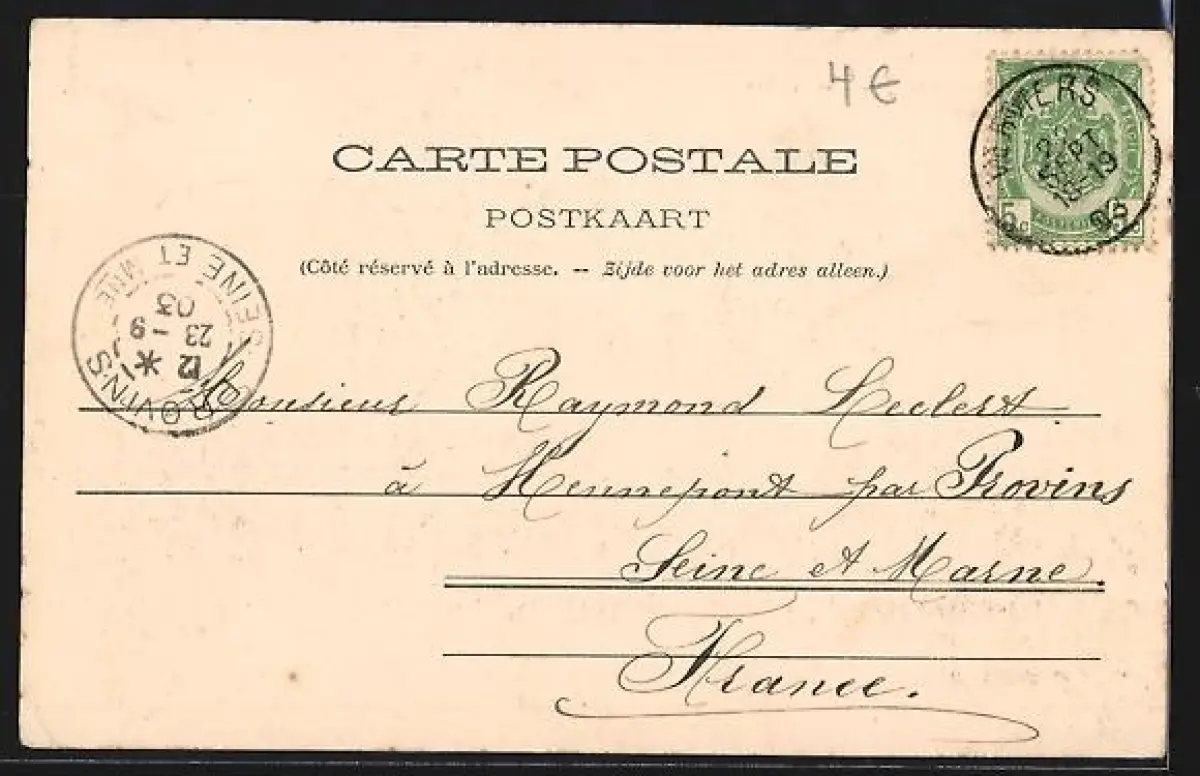 4 €
CARTE POSTALE
POSTKAART
(Côté réservé à l'adresse. -- Zijde voor het adres alleen.)
SEPT
18-19
03
5c
PROVINS
SEINE ET MNE
12 *
23 - 9
03
Monsieur Raymond Leclert
à Hennepont par Provins
Seine et Marne.
France.